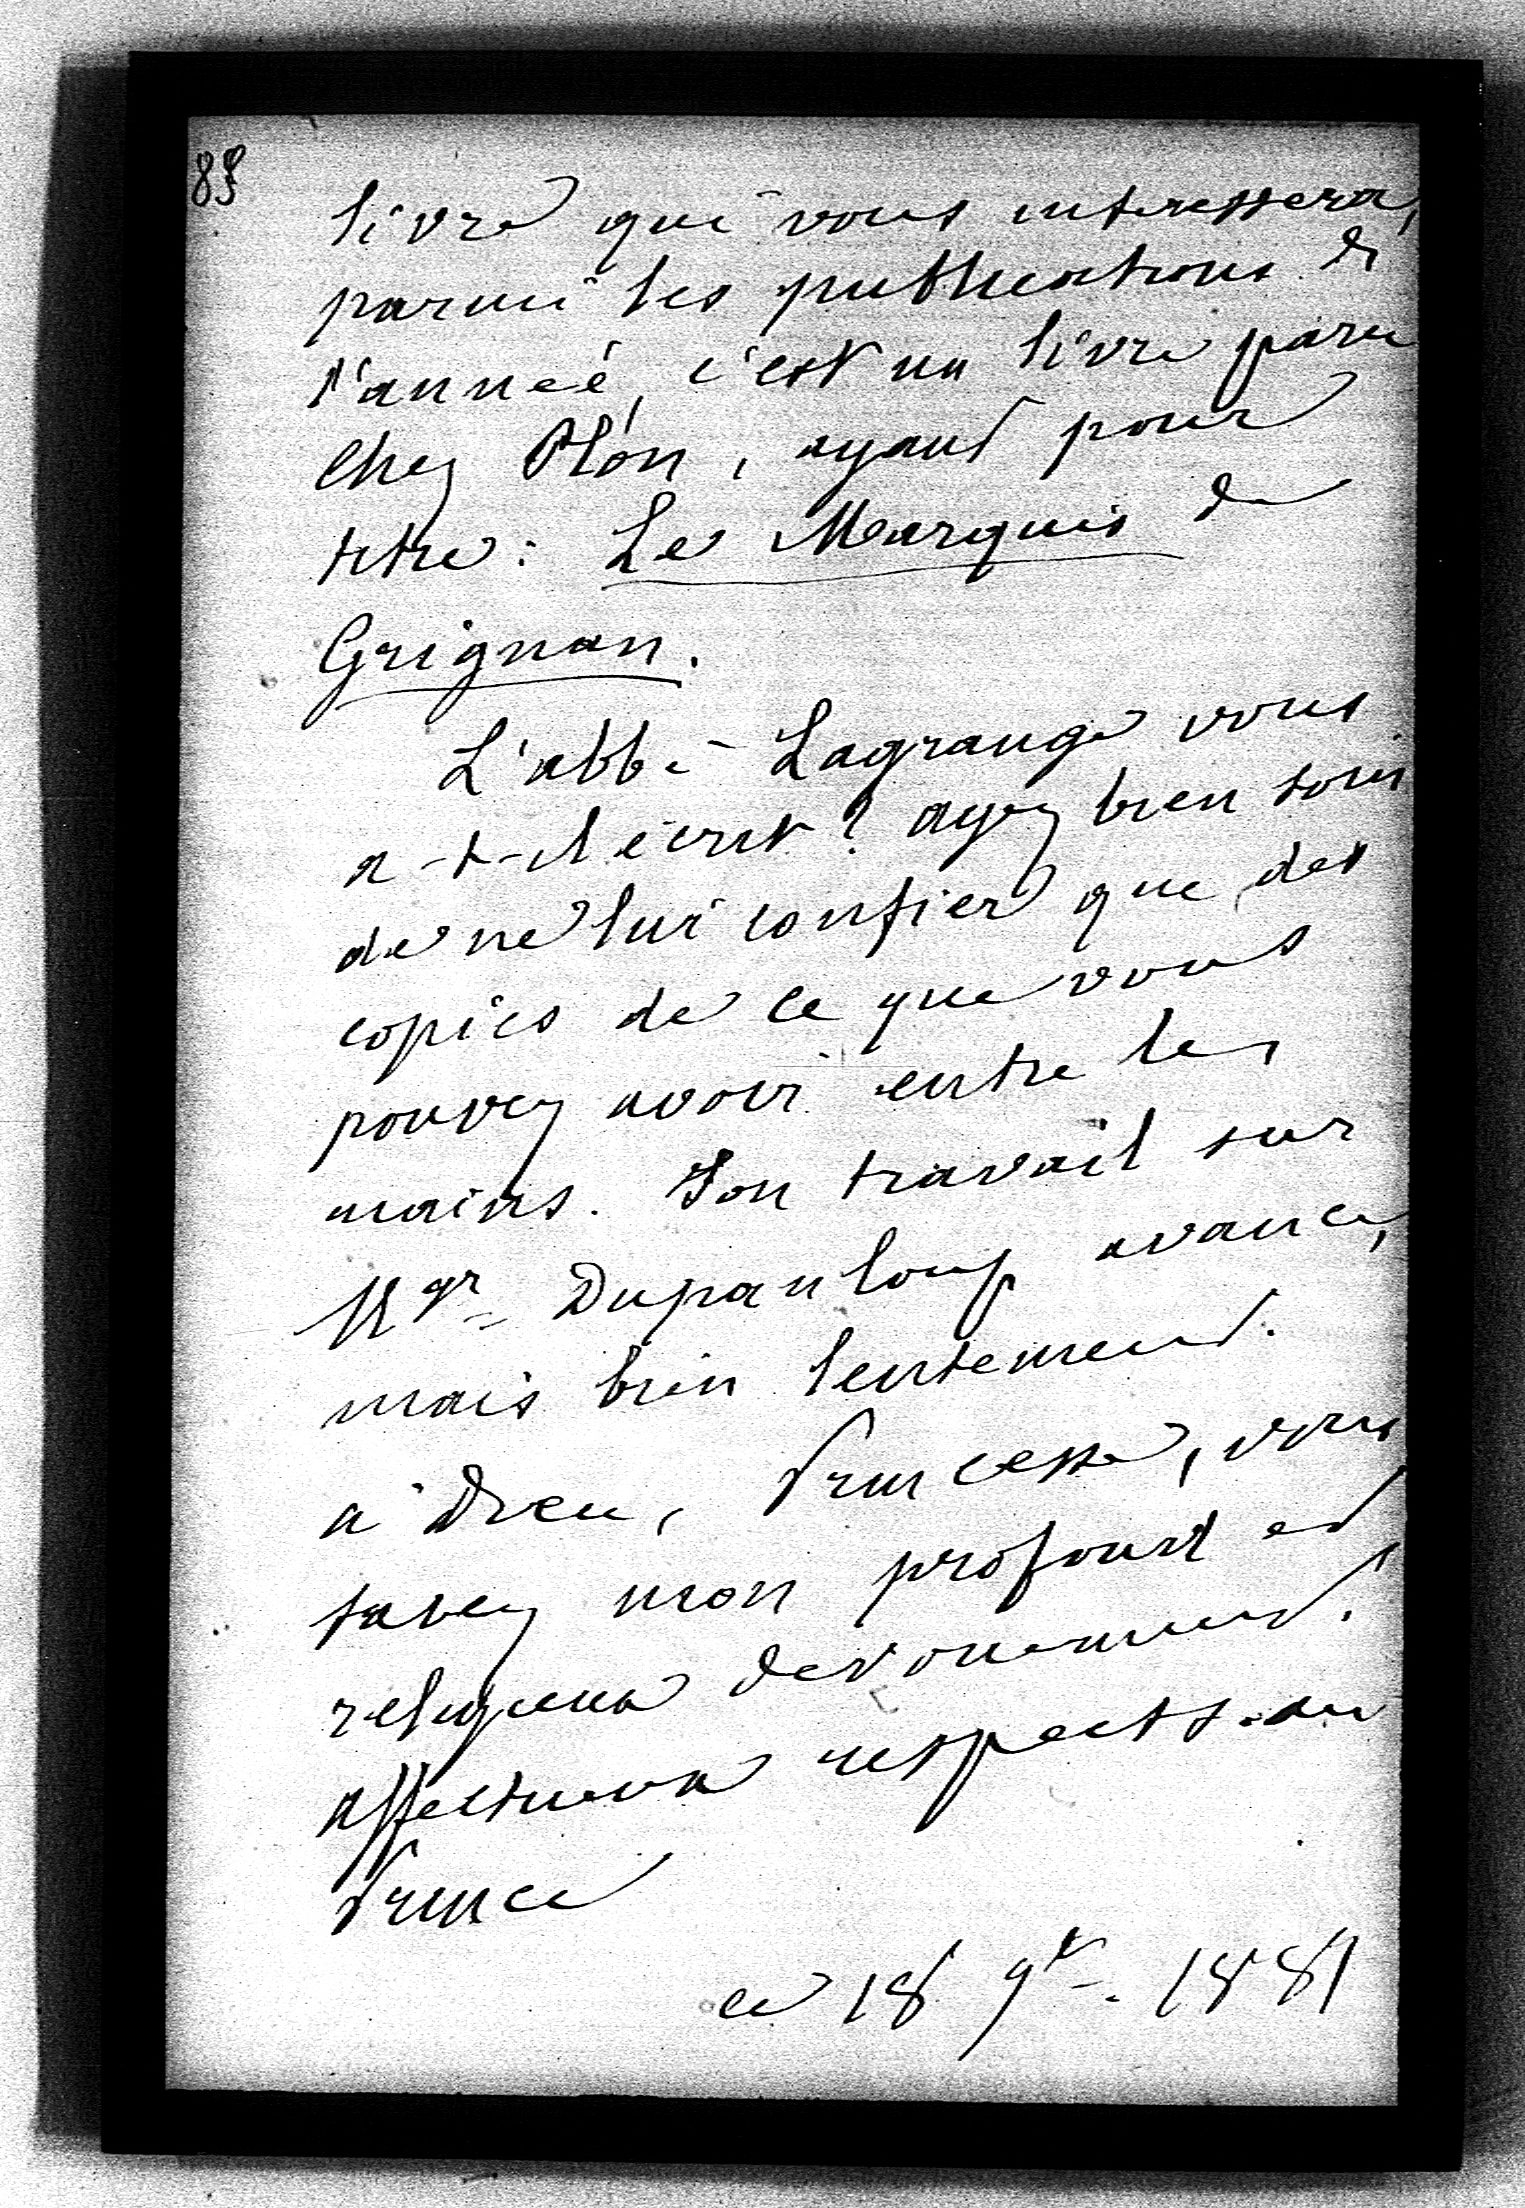 livre qui vous interessera,
parmi les publications de
l'année, c'est un livre paru
chez Plon, ayant pour
titre : Le Marquis de
Grignan.
L'abbé Lagrange vous
a-t-il écrit ? ayez bien soin
de ne lui confier que des
copies de ce que vous
pouvez avoir entre les
mains. Son travail sur
Mgr Dupanloup avance,
mais bien lentement.
a Dieu, Princesse, vous
savez mon profond et
religieux devouement.
affectueux respects au
Prince
ce 18 9bre. 1881